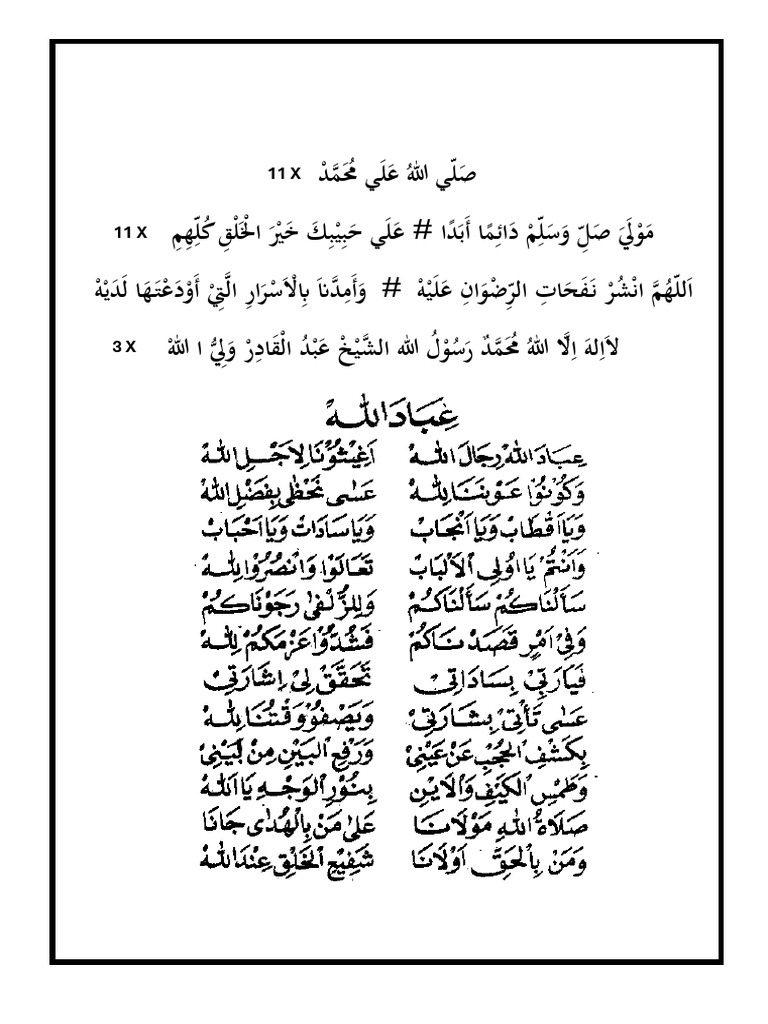 صَلّي اللهُ عَلَي مُحَمَّدْ 11 X
مَوْلَيَ صَلِّ وَسَلِّمْ دَائِمًا أَبَدًا # عَلَي حَبِيْبِكَ خَيْرَ الْخَلْقِ كُلِّهِمِ 11 X
اَللّهُمَّ انْشُرْ نَفَحَاتِ الرِّضْوَانِ عَلَيْهْ # وَأَمِدَّناَ بِالْاَسْرَارِ الَّتِيْ أَوْدَعْتَهَا لَدَيْهْ
لاَاِلهَ اِلَّا اللهُ مُحَمَّدٌ رَسُوْلُ الله الشَّيْخْ عَبْدُ الْقَادِرْ وَلِيُّ ا اللهْ 3 X
عِبَادَ اللهْ
عِبَادَ اللهْ رِجَالَ اللهْ اَغِيْثُوْنَا لِاَجْلِ اللهْ
وَكُوْنُوْا عَوْنَنَا لِلهْ عَسٰى نَحْظٰى بِفَضْلِ اللهْ
وَيَا اَقْطَابْ وَيَا اَنْجَابْ وَيَا سَادَاتْ وَيَا اَحْبَابْ
وَاَنْتُمْ يَا اُولِى الْاَلْبَابْ تَعَالَوْا وَانْصُرُوْا لِلهْ
سَأَلْنَاكُمْ سَأَلْنَاكُمْ وَلِلزُّلْفٰى رَجَوْنَاكُمْ
وَفِيْ اَمْرٍ قَصَدْنَاكُمْ فَشُدُّوْا عَزْمَكُمْ لِلهْ
فَيَارَبِّيْ بِسَادَاتِيْ تَحَقَّقْ لِيْ اِشَارَتِيْ
عَسٰى تَأْتِيْ بِشَارَتِيْ وَيَصْفُوْ وَقْتُنَا لِلهْ
بِكَشْفِ الْحُجْبِ عَنْ عَيْنِيْ وَرَفْعِ الْبَيْنِ مِنْ بَيْنِيْ
وَطَمْسِ الْكَيْفِ وَالْاَيْنِ بِنُوْرِ الْوَجْهِ يَا اَللهْ
صَلَاةُ اللهِ مَوْلَانَا عَلٰى مَنْ بِالْهُدٰى جَانَا
وَمَنْ بِالْحَقِّ اَوْلَانَا شَفِيْعِ الْخَلْقِ عِنْدَ اللهْ